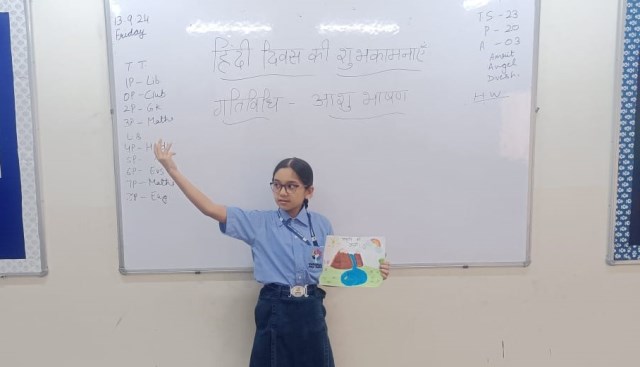 13.9.24
Friday
T T
1P - Lib
0P - Club
2P - Gk
3P - Maths
L B
4P - H
5P -
6P - Evs
7P - Maths
8P - Eng
हिंदी दिवस की शुभकामनाएँ
गतिविधि - आशु भाषण
T S - 23
P - 20
A - 03
Angel
H.W.